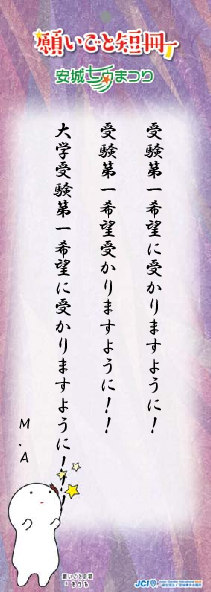 願いごと短冊
安城七夕まつり
受験第一希望に受かりますように
受験第一希望受かりますように！！
大学受験第一希望に受かりますように！！
M.A
JCI